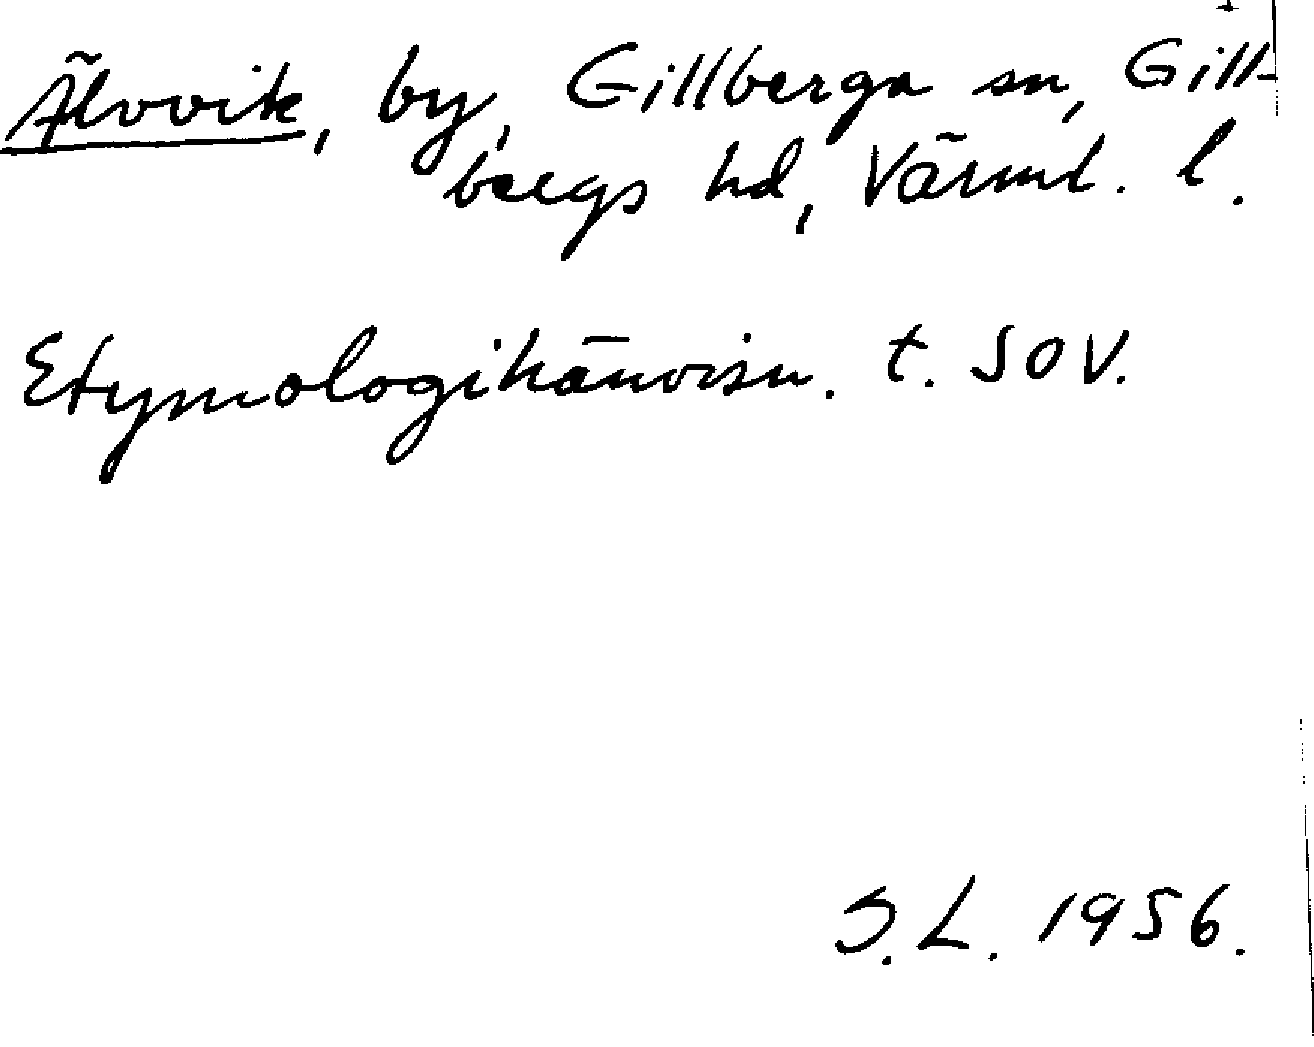 Älvvik, by, Gillberga sn, Gill-
bergs hd, Värml. l.
Etymologihänvisn. t. SOV.
S.L. 1956.